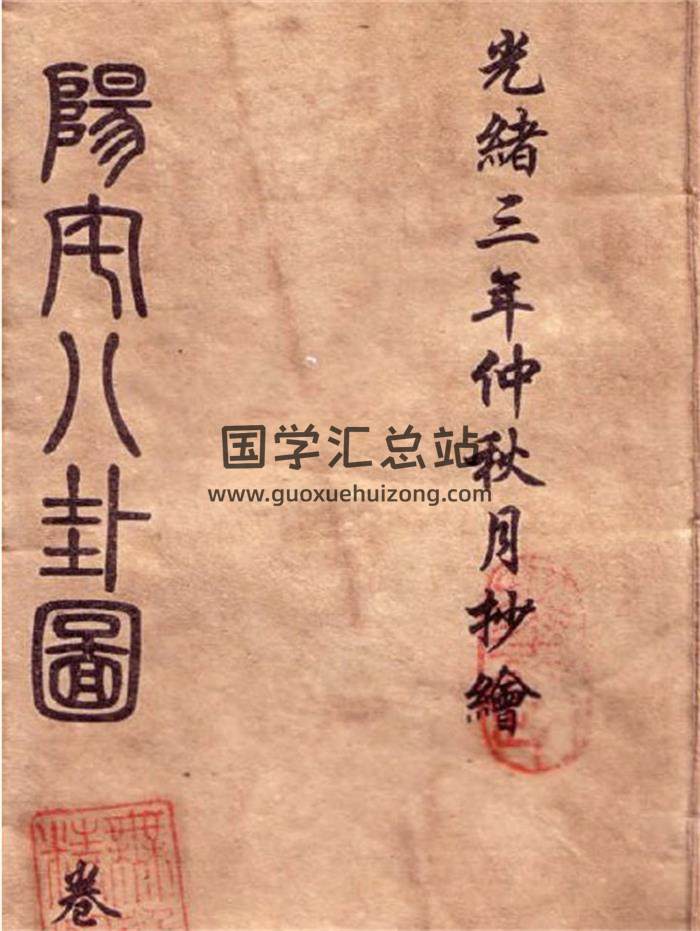 光緒三年仲秋月抄繪
陽宅八卦圖
卷
国学汇总站
www.guoxuehuizong.com